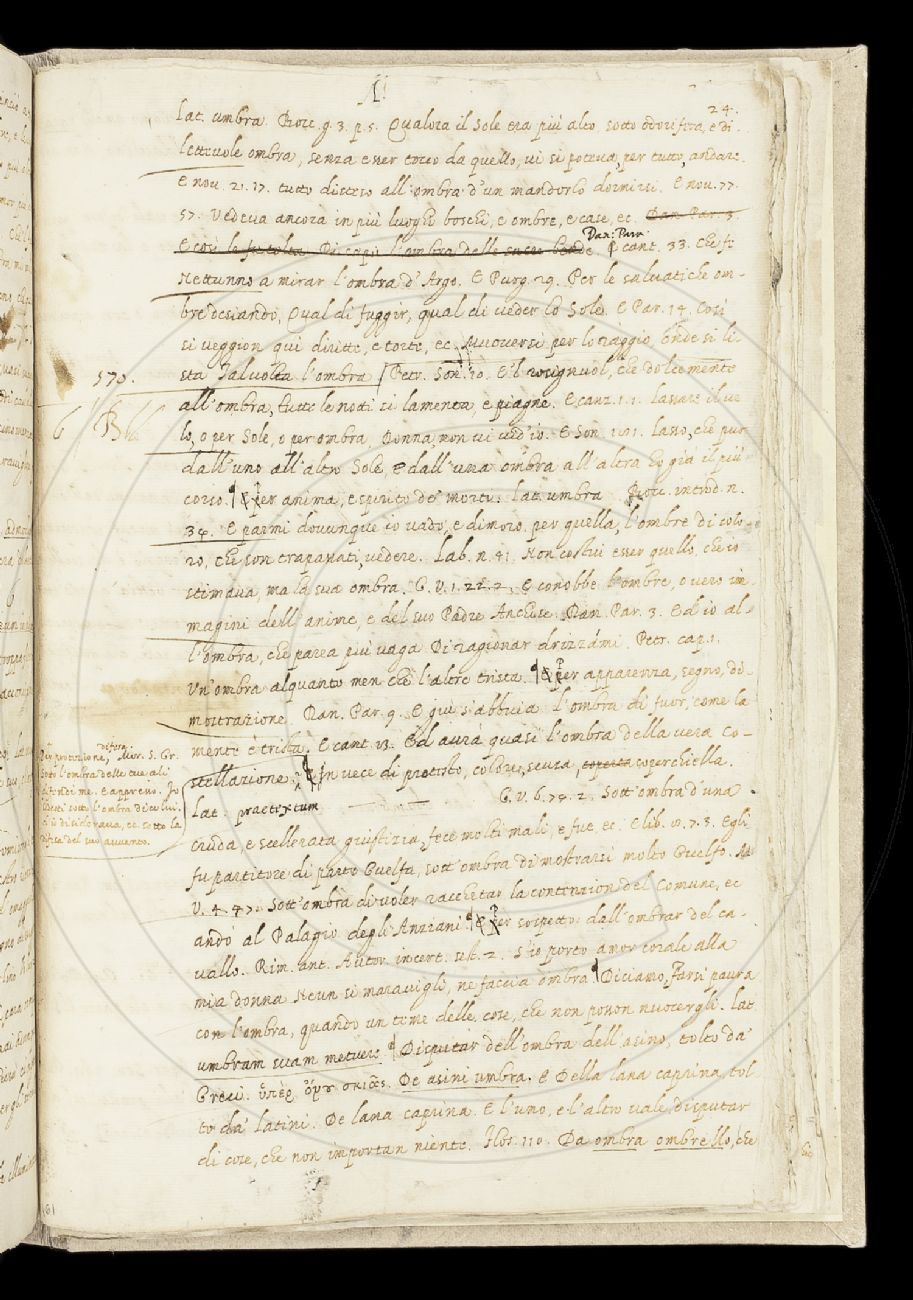 24.
lat. umbra. Bocc. g. 3. p. 5. Qualora il Sole era più alto sotto odorifera, e di-
lettevole ombra, senza esser tocco da quello, vi si poteva, per tutto, andare.
E nov. 21. 17. tutto disteso all'ombra d'un mandorlo dormirsi. E nov. 77.
57. Vedeva ancora in più luoghi boschi, e ombre, e case, ec. Dan. Par. 3.
Dan: Para
E cant. 33. Che fe
Nettunno a mirar l'ombra d'Argo. E Purg. 29. Per le salvatiche om-
bre desiando, Qual di fuggir, qual di veder lo Sole. E Par. 14. Così
si veggion qui diritte, e torte, ec. Muoversi per lo raggio, onde si li-
570.
sta Talvolta l'ombra Petr. Son. 10. E'l rosignuol, che dolcemente
all'ombra, tutte le notti si lamenta, e piagne. E canz. 1. 1. Lassare il ve-
lo, o per Sole, o per ombra, Donna, non vi vid'io. E Son. Lasso, che pur
dall'uno all'altro Sole, e dall'una ombra all'altra ho già il più
corso. Per anima, e spirito de' morti. lat. umbra Bocc. introd. n.
34. E parmi dovunque io vado, e dimoro, per quella, l'ombre di colo-
ro, che son trapassati, vedere. Lab. n. 41. Non costui esser quello, che io
stimava, ma la sua ombra. G. V. 1. 22. 2. E conobbe l'ombre, o vero im-
magini dell'anime, e del suo Padre Anchise. Dan. Par. 3. Ed io al-
l'ombra, che parea più vaga Di ragionar drizzámi. Petr. cap. 1.
Un'ombra alquanto men che l'altre trista. Per apparenza, segno, di-
mostrazione. Dan. Par. 9. E qui s'abbuia l'ombra di fuor, come la
mente è trista. E cant. 13. Ed avrà quasi l'ombra della vera co-
stellazione. In vece di pretesto, colore, scusa, coperta coperchiella.
Per protezione, difesa, Mor. S. Gr.
Sotto l'ombra delle tue ali
difendi me. E appresso. Io
sedetti sotto l'ombra di colui,
ch'io disiderava, ec. sotto la
difesa del suo avvento.
lat. praetextum G. V. 6. 74. 2. Sott'ombra d'una
cruda, e scellerata giustizia, fece molti mali, e fue, ec. E lib. 8. 7. 3. Egli
fu partitore di parte Guelfa, sott'ombra di mostrarsi molto Guelfo. M.
V. 4. 47. Sott'ombra di voler racchetar la contenzion del Comune, ec
andò al Palagio degli Anziani Per sospetto: dall'ombrar del ca-
vallo. Rim. ant. Autor incert. 2. S'io porto amor corale alla
mia donna Neun si maravigli, ne faccia ombra Diciamo, Farsi paura
con l'ombra, quando un teme delle cose, che non posson nuocergli. lat.
umbram suam metuere. Disputar dell'ombra dell'asino, tolto da'
Greci. ὑπὲρ ὄνου σκιᾶς. De asini umbra. E Della lana caprina, tol-
to da' latini. De lana caprina. E l'uno, e l'altro vale, disputar
di cose, che non importan niente. Flos. 110. Da ombra ombrello, che